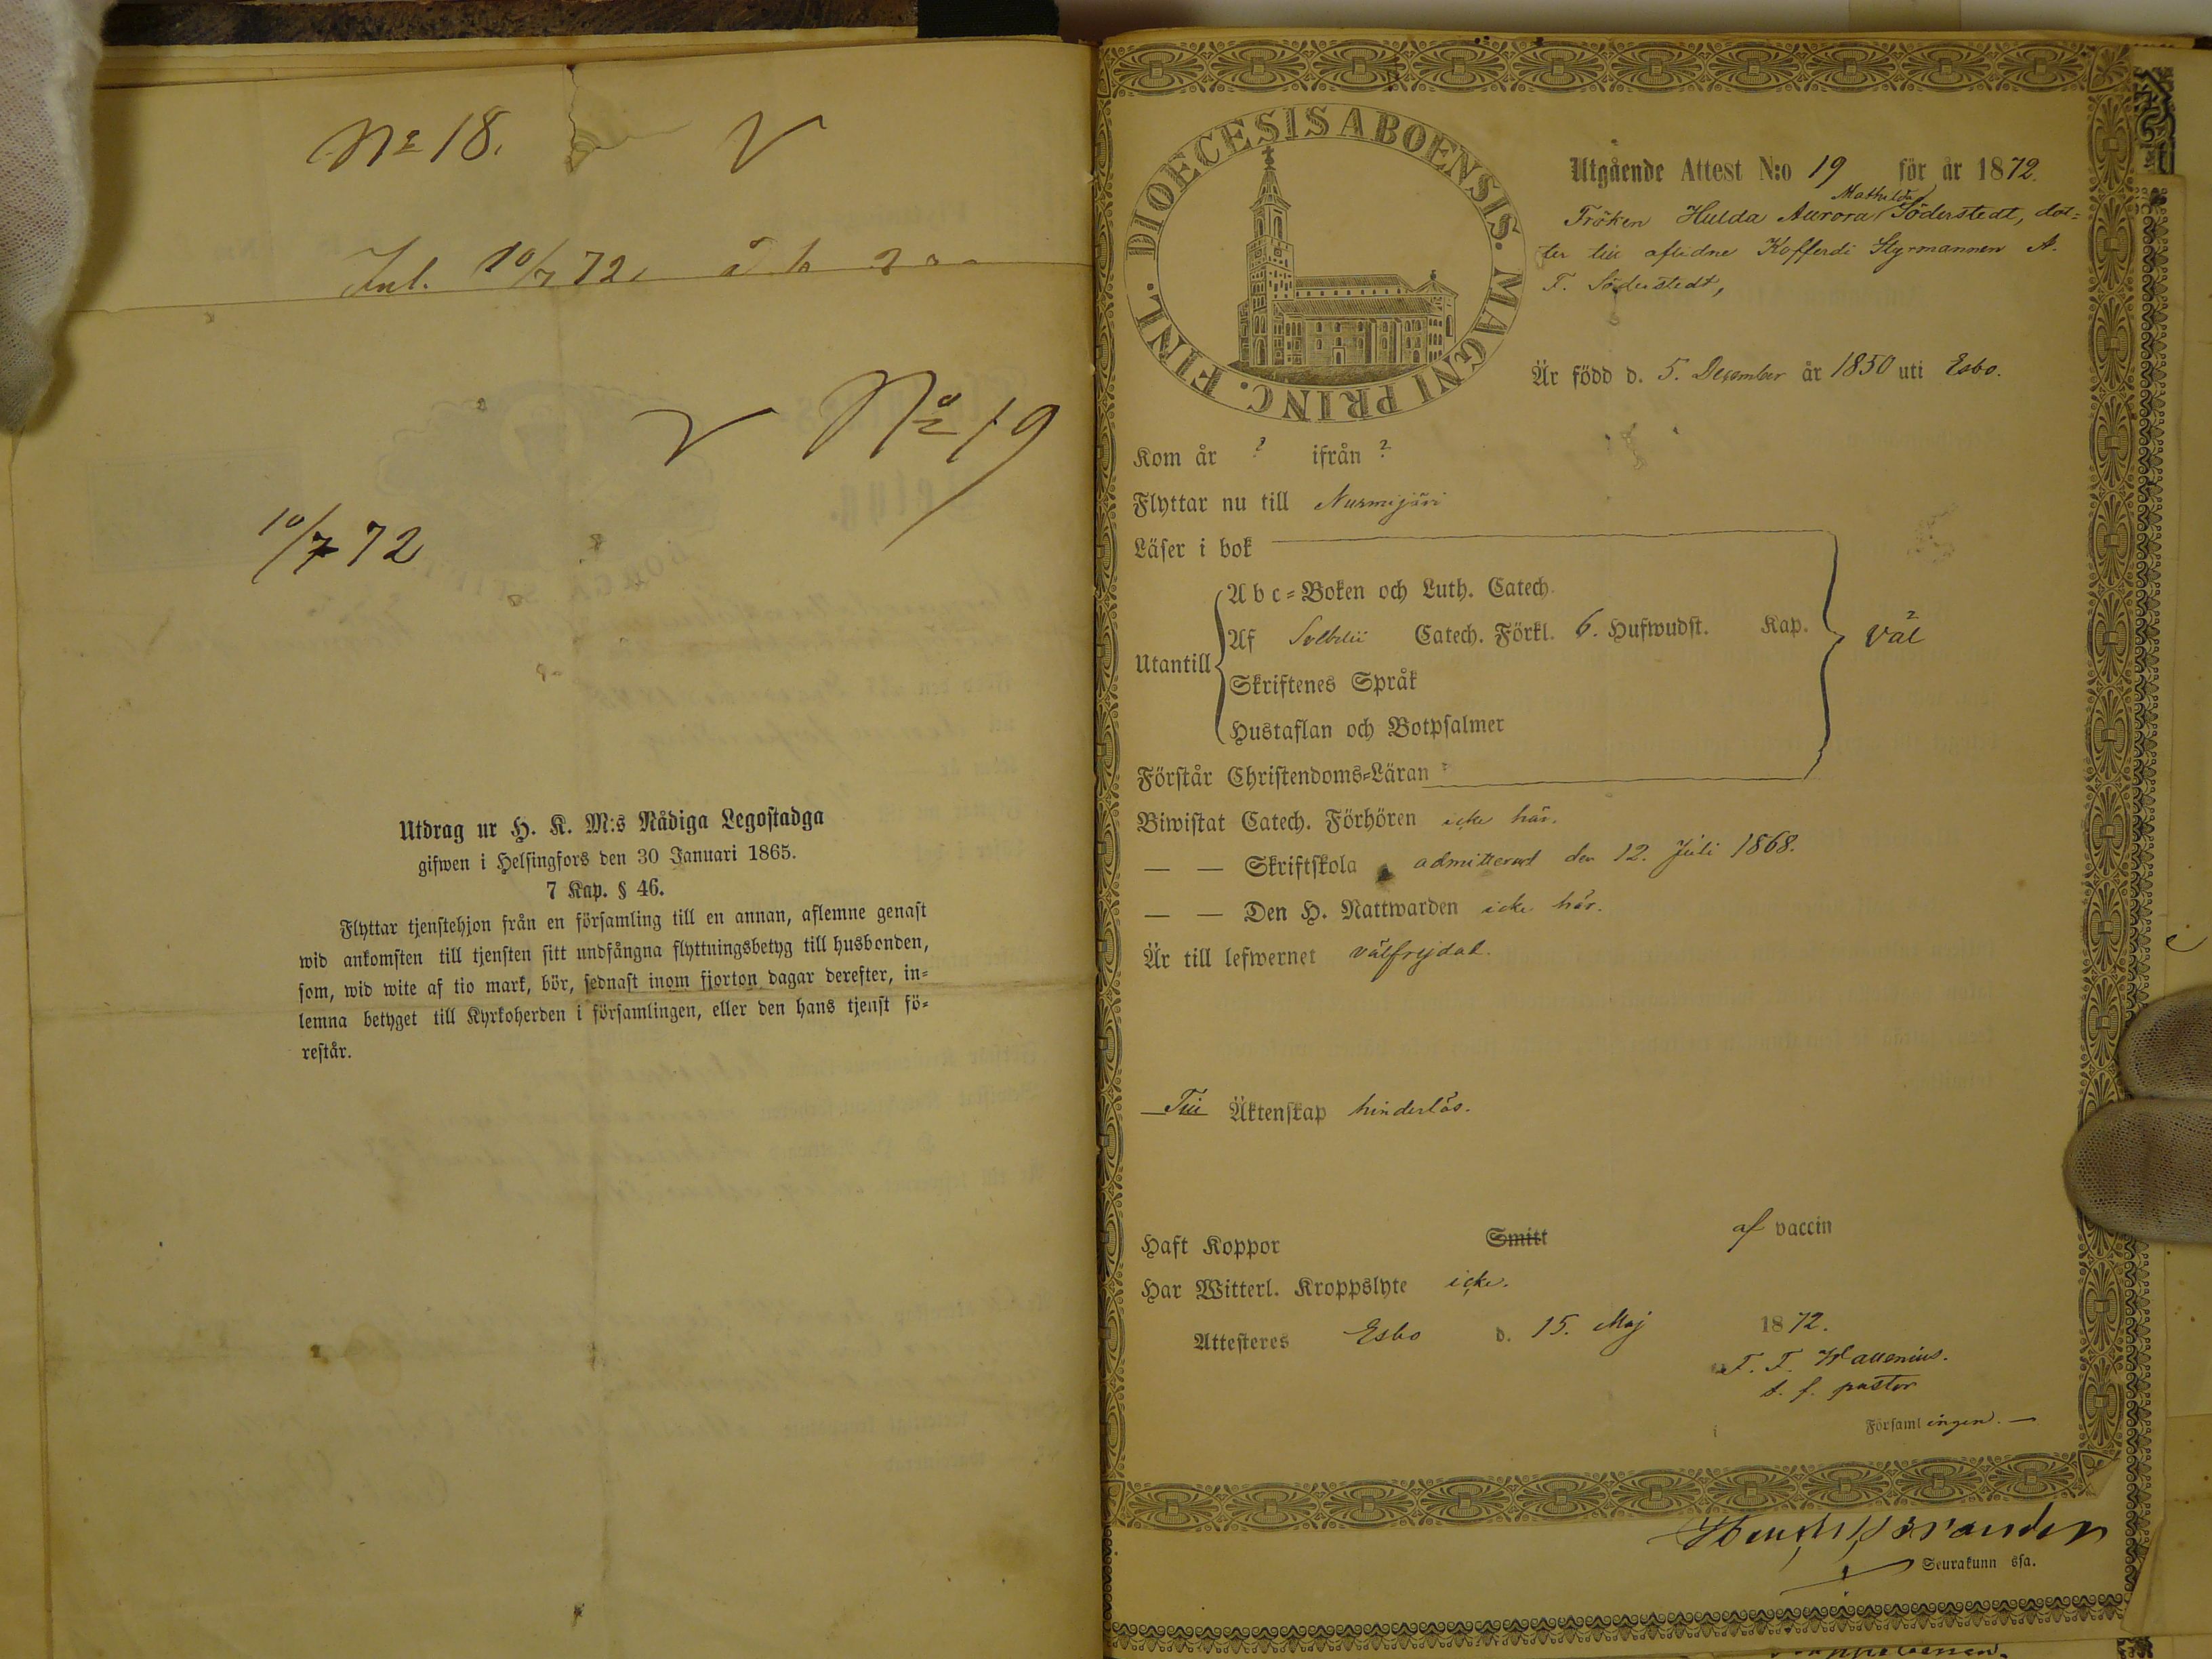 No 18. V
Inl. 10/7 72.
V No 19
10/7 72
Utdrag ur H. K. M:s Nådiga Legostadga
gifwen i Helsingfors den 30 Januari 1865.
7 Kap. § 46.
Flyttar tjenstehjon från en församling till en annan, aflemne genast
wid ankomsten till tjensten sitt undfångna flyttningsbetyg till husbonden,
som, wid wite af tio mark, bör, sednast inom fjorton dagar derefter, in-
lemna betyget till Kyrkoherden i församlingen, eller den hans tjenst fö-
restår.
DIOECESIS ABOENSIS. MAGNI PRINC. FINL.
Utgående Attest N:o 19 för år 1872.
Mathilda
Fröken Hulda Aurora Söderstedt, dot-
ter till aflidne Kofferdi Styrmannen A.
F. Söderstedt,
Är född d. 5. December år 1850 uti Esbo.
Kom år ? ifrån ?
Flyttar nu till Nurmijärvi
Läser i bok
A b c-Boken och Luth. Catech.
Utantill Af Svebelii Catech. Förkl. 6. Hufwudst. Kap. väl
Skriftenes Språk
Hustaflan och Botpsalmer
Förstår Christendoms-Läran
Biwistat Catech. Förhören icke här.
— — Skriftskola admitterad den 12. Juli 1868.
— — Den H. Nattwarden icke här.
Är till lefwernet välfrejdad.
Till Äktenskap hinderlös.
Haft Koppor Smitt af vaccin
Har Witterl. Kroppslyte icke.
Attesteres Esbo d. 15. Maj 1872.
F. F. Wallenius.
t. f. pastor
Församlingen. —
Seurakunn ssa.